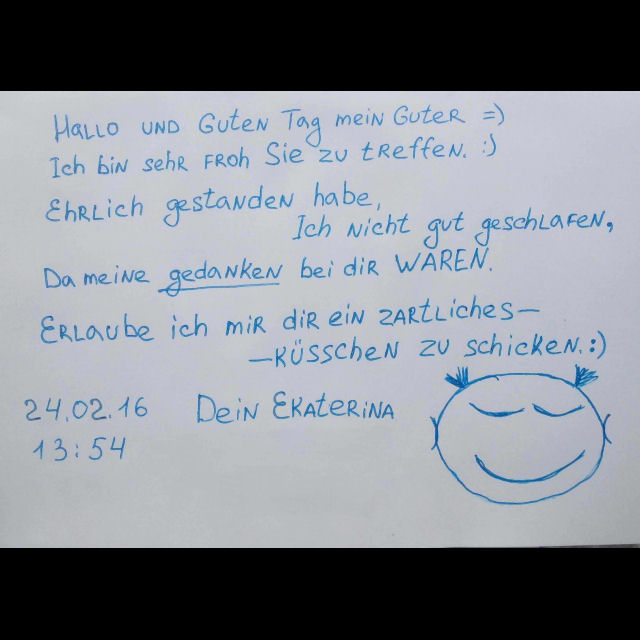 Hallo und Guten Tag mein Guter =)
Ich bin sehr froh Sie zu treffen. :)
Ehrlich gestanden habe,
Ich nicht gut geschlafen,
Da meine gedanken bei dir waren.
Erlaube ich mir dir ein zartliches—
—küsschen zu schicken. :)
24.02.16 Dein Ekaterina
13:54